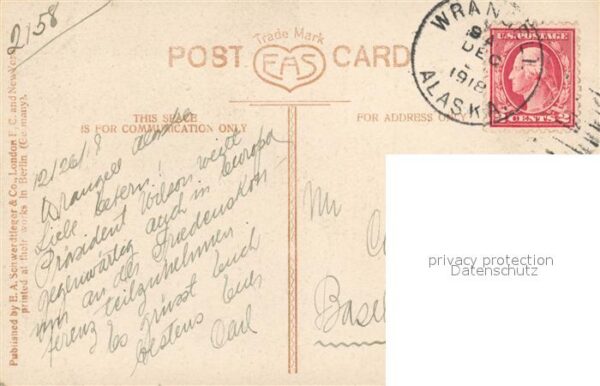 2158
Trade Mark
POST CARD
EAS
WRANGELL
DEC
1918
ALASKA
U.S. POSTAGE
2 CENTS 2
THIS SPACE
IS FOR COMMUNICATION ONLY
FOR ADDRESS ONLY
Published by E. A. Schwerdtfeger & Co., London E. C. and New York
printed at their works in Berlin (Germany).
12/26/18
Wrangell Alaska
Liebe Eltern!
Präsident Wilson weilt
gegenwärtig auch in Europa
um an der Friedenskon
ferenz teilzunehmen.
Es grüsst Euch
bestens Euer
Carl
Mr
Basel
privacy protection
Datenschutz